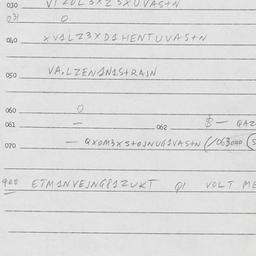 030 VIZOLSXZSXUVAS+N
031 O
040 XV1LZ3XD1HENTUVAS+N
050 VA,LZEN1N1STRAIN
060 O
061 — 062 $— QAZ
070 — QXOM3XS+OJNUG1VAS+N (/063040 (S
900 ETM1NVEJNG81ZUKT Q1 VOLT ME